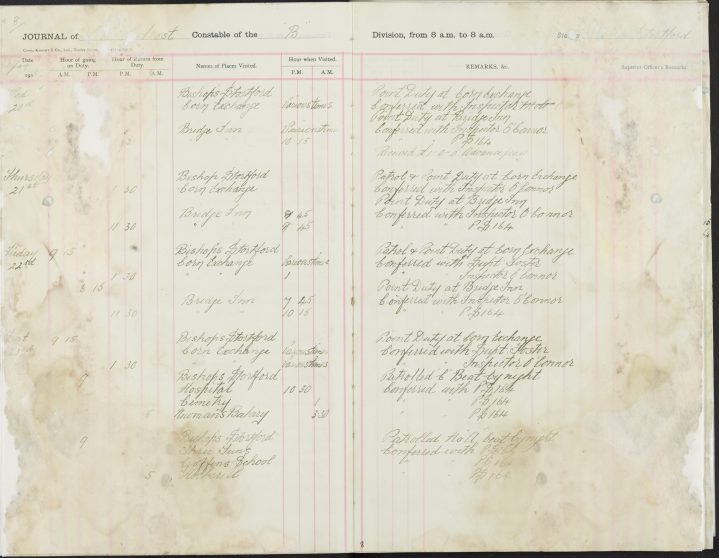 JOURNAL of Constable of the B Division, from 8 a.m. to 8 a.m.
Date
Hour of going on Duty. A.M. P.M.
Hour of Return from Duty. P.M. A.M.
Names of Places Visited.
Hour when Visited. P.M. A.M.
REMARKS, &c.
Superior Officer's Remarks.
Bishops Stortford Point Duty at Corn Exchange
Corn Exchange Various times Conferred with Inspector
Point Duty at Bridge Inn
Bridge Inn Various times Conferred with Inspector O'Connor
" " 10 15 " " P.C. 164
Thursday Bishop Stortford Patrol & Point Duty at Corn Exchange
21st 1 30 Corn Exchange Conferred with Inspector O'Connor
Point Duty at Bridge Inn
Bridge Inn 8 45 Conferred with Inspector O'Connor
11 30 " " 9 45 " " P.C. 164
Friday 9 15 Bishops Stortford Patrol & Point Duty at Corn Exchange
22nd Corn Exchange Various times Conferred with Supt. Foster
1 30 " " 1 " Inspector O'Connor
6 15 Point Duty at Bridge Inn
Bridge Inn 7 45 Conferred with Inspector O'Connor
11 30 " " 10 15 " " P.C. 164
9 15 Bishops Stortford Point Duty at Corn Exchange
Corn Exchange Various times Conferred with Supt. Foster
1 30 " " Various times Inspector O'Connor
9 Bishops Stortford Patrolled C Beat by night
Hospital 10 30 Conferred with P.C. 164
Cemetry 1 " " P.C. 164
Newmans Bakery 3 30 " " P.C. 164
9 Bishops Stortford Patrolled beat by night
Three Tuns Conferred with P.C. 164
School " " P.C. 164
5 P.C. 164